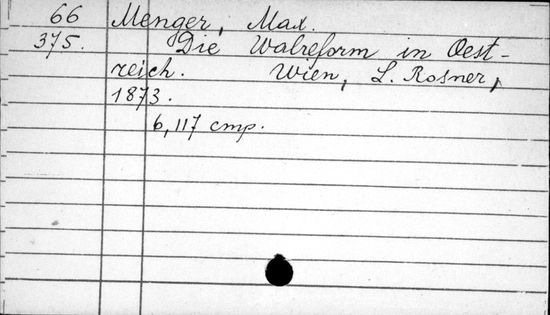 66 Menger, Max.
375. Die Walreform in Oest-
reich. Wien, L. Rosner,
1873.
6,117 стр.